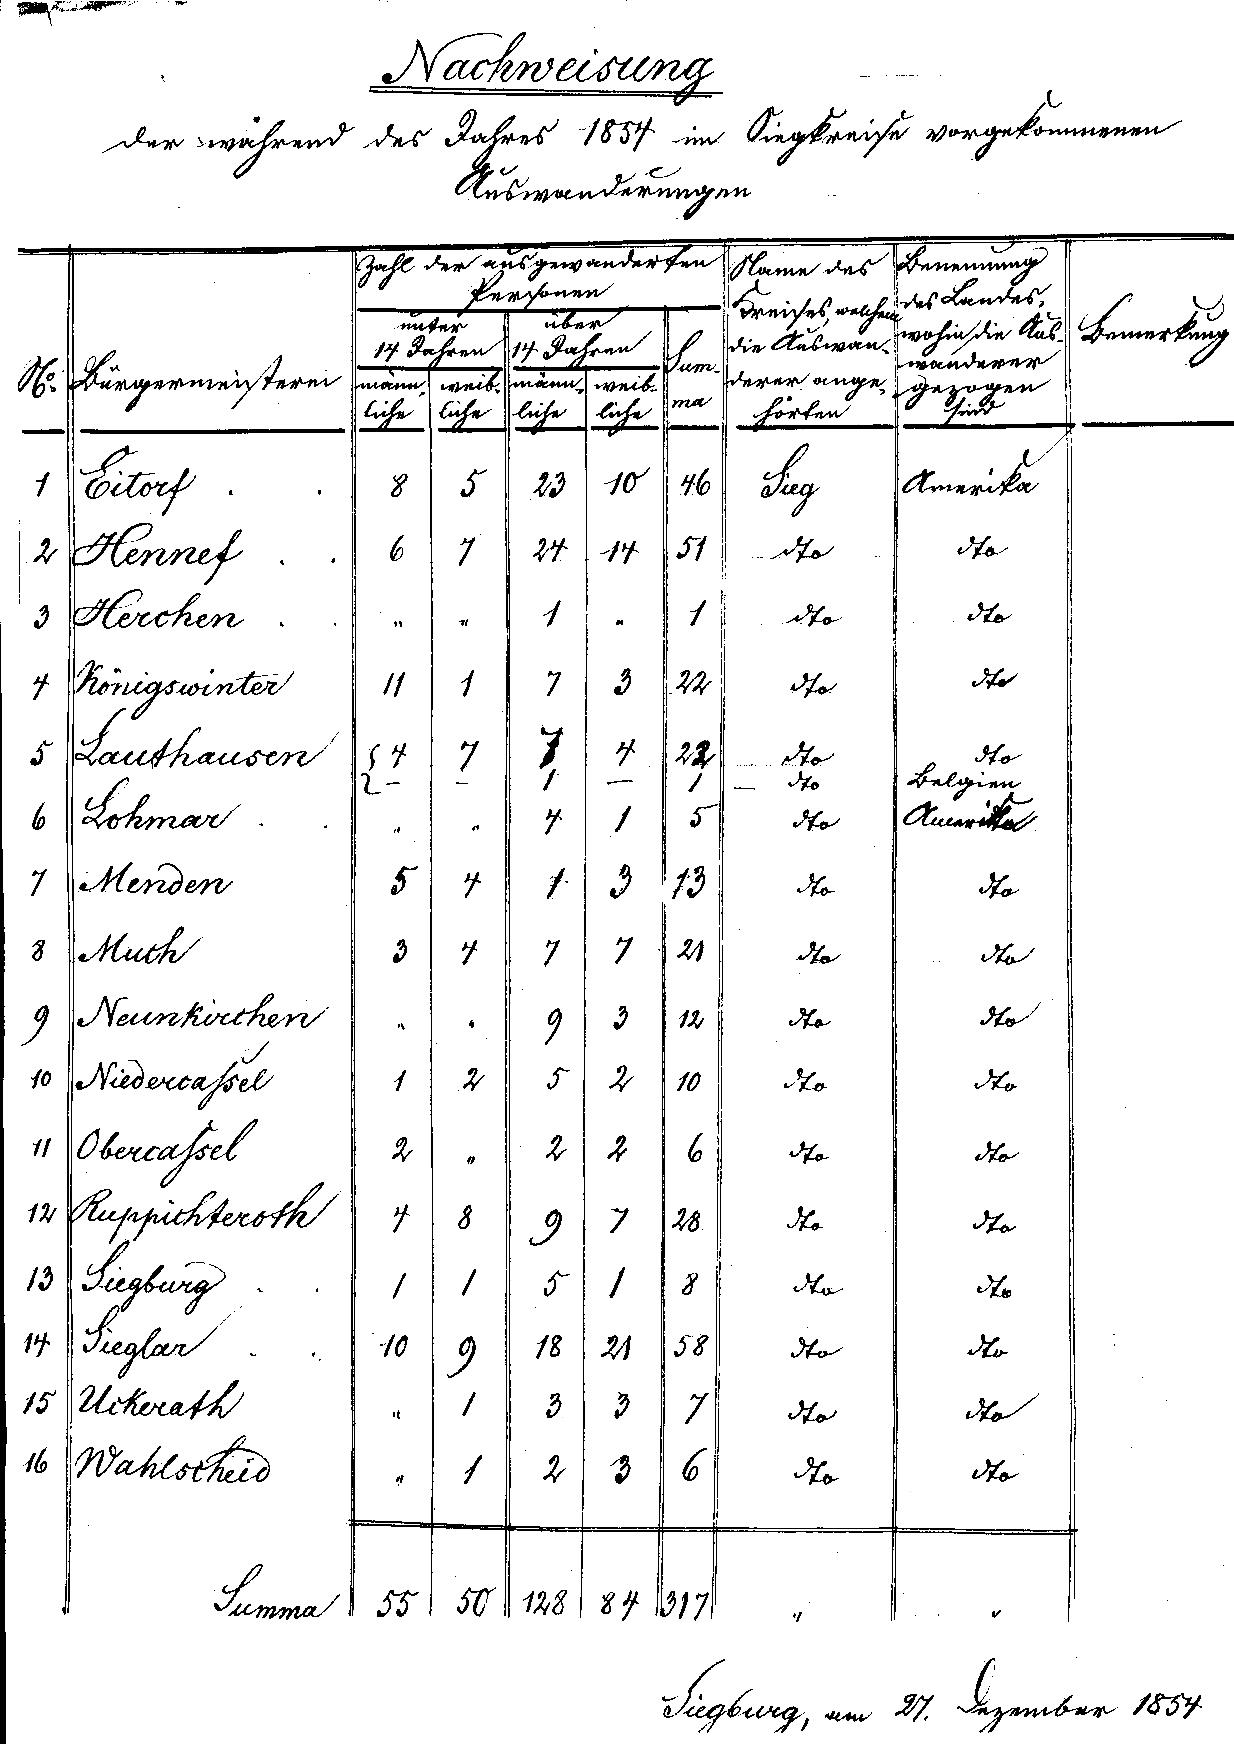 Nachweisung
der während des Jahres 1854 im Siegkreise vorgekommenen
Auswanderungen
No. Bürgermeisterei Zahl der ausgewanderten Personen unter 14 Jahren männ- liche weib- liche über 14 Jahren männ- liche weib- liche Sum- ma Name des Kreises, welchem die Auswan- derer ange- hörten Benennung des Landes, wohin die Aus- wanderer gezogen sind Bemerkung
1 Eitorf . . 8 5 23 10 46 Sieg Amerika
2 Hennef . . 6 7 24 14 51 dto dto
3 Herchen . . " " 1 " 1 dto dto
4 Königswinter 11 1 7 3 22 dto dto
5 Lauthausen 4 7 7 4 22 dto dto
– – 1 – 1 dto Belgien
6 Lohmar . . " " 4 1 5 dto Amerika
7 Menden 5 4 1 3 13 dto dto
8 Much 3 4 7 7 21 dto dto
9 Neunkirchen " " 9 3 12 dto dto
10 Niedercassel 1 2 5 2 10 dto dto
11 Obercassel 2 " 2 2 6 dto dto
12 Ruppichteroth 4 8 9 7 28 dto dto
13 Siegburg . . 1 1 5 1 8 dto dto
14 Sieglar . . 10 9 18 21 58 dto dto
15 Uckerath " 1 3 3 7 dto dto
16 Wahlscheid " 1 2 3 6 dto dto
Summa 55 50 128 84 317 " "
Siegburg, am 27. Dezember 1854